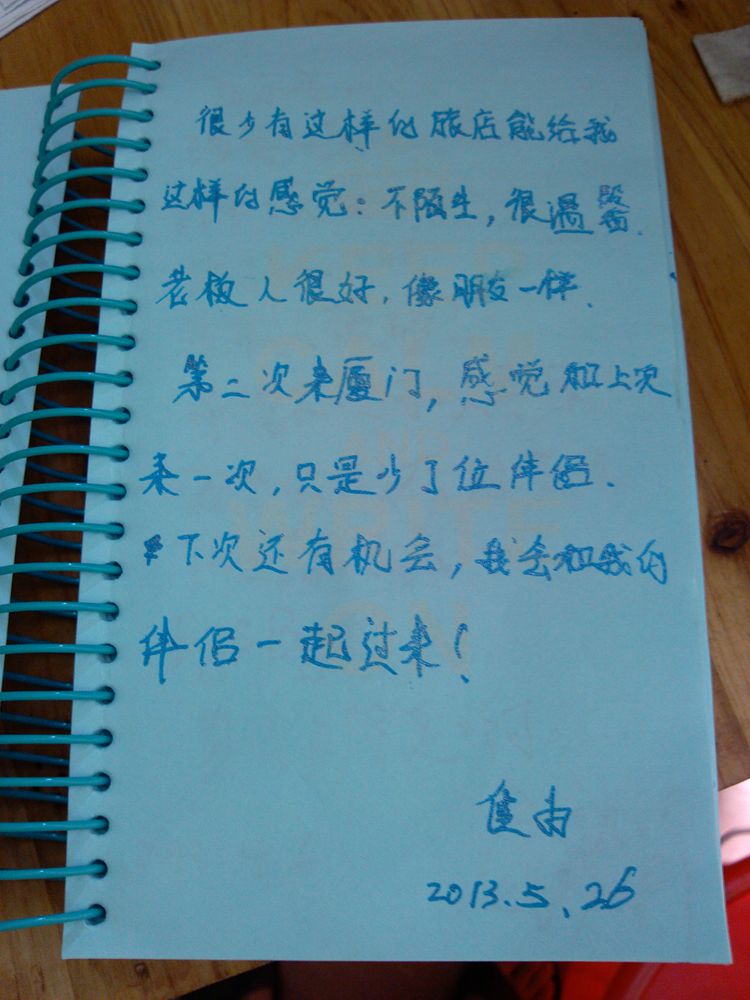 很少有这样的旅店能给我
这样的感觉：不陌生，很温
老板人很好，像朋友一样.
第二次来厦门，感觉和上次
来一次，只是少了位伴侣.
下次还有机会，我会和我的
伴侣一起过来！
2013.5.26